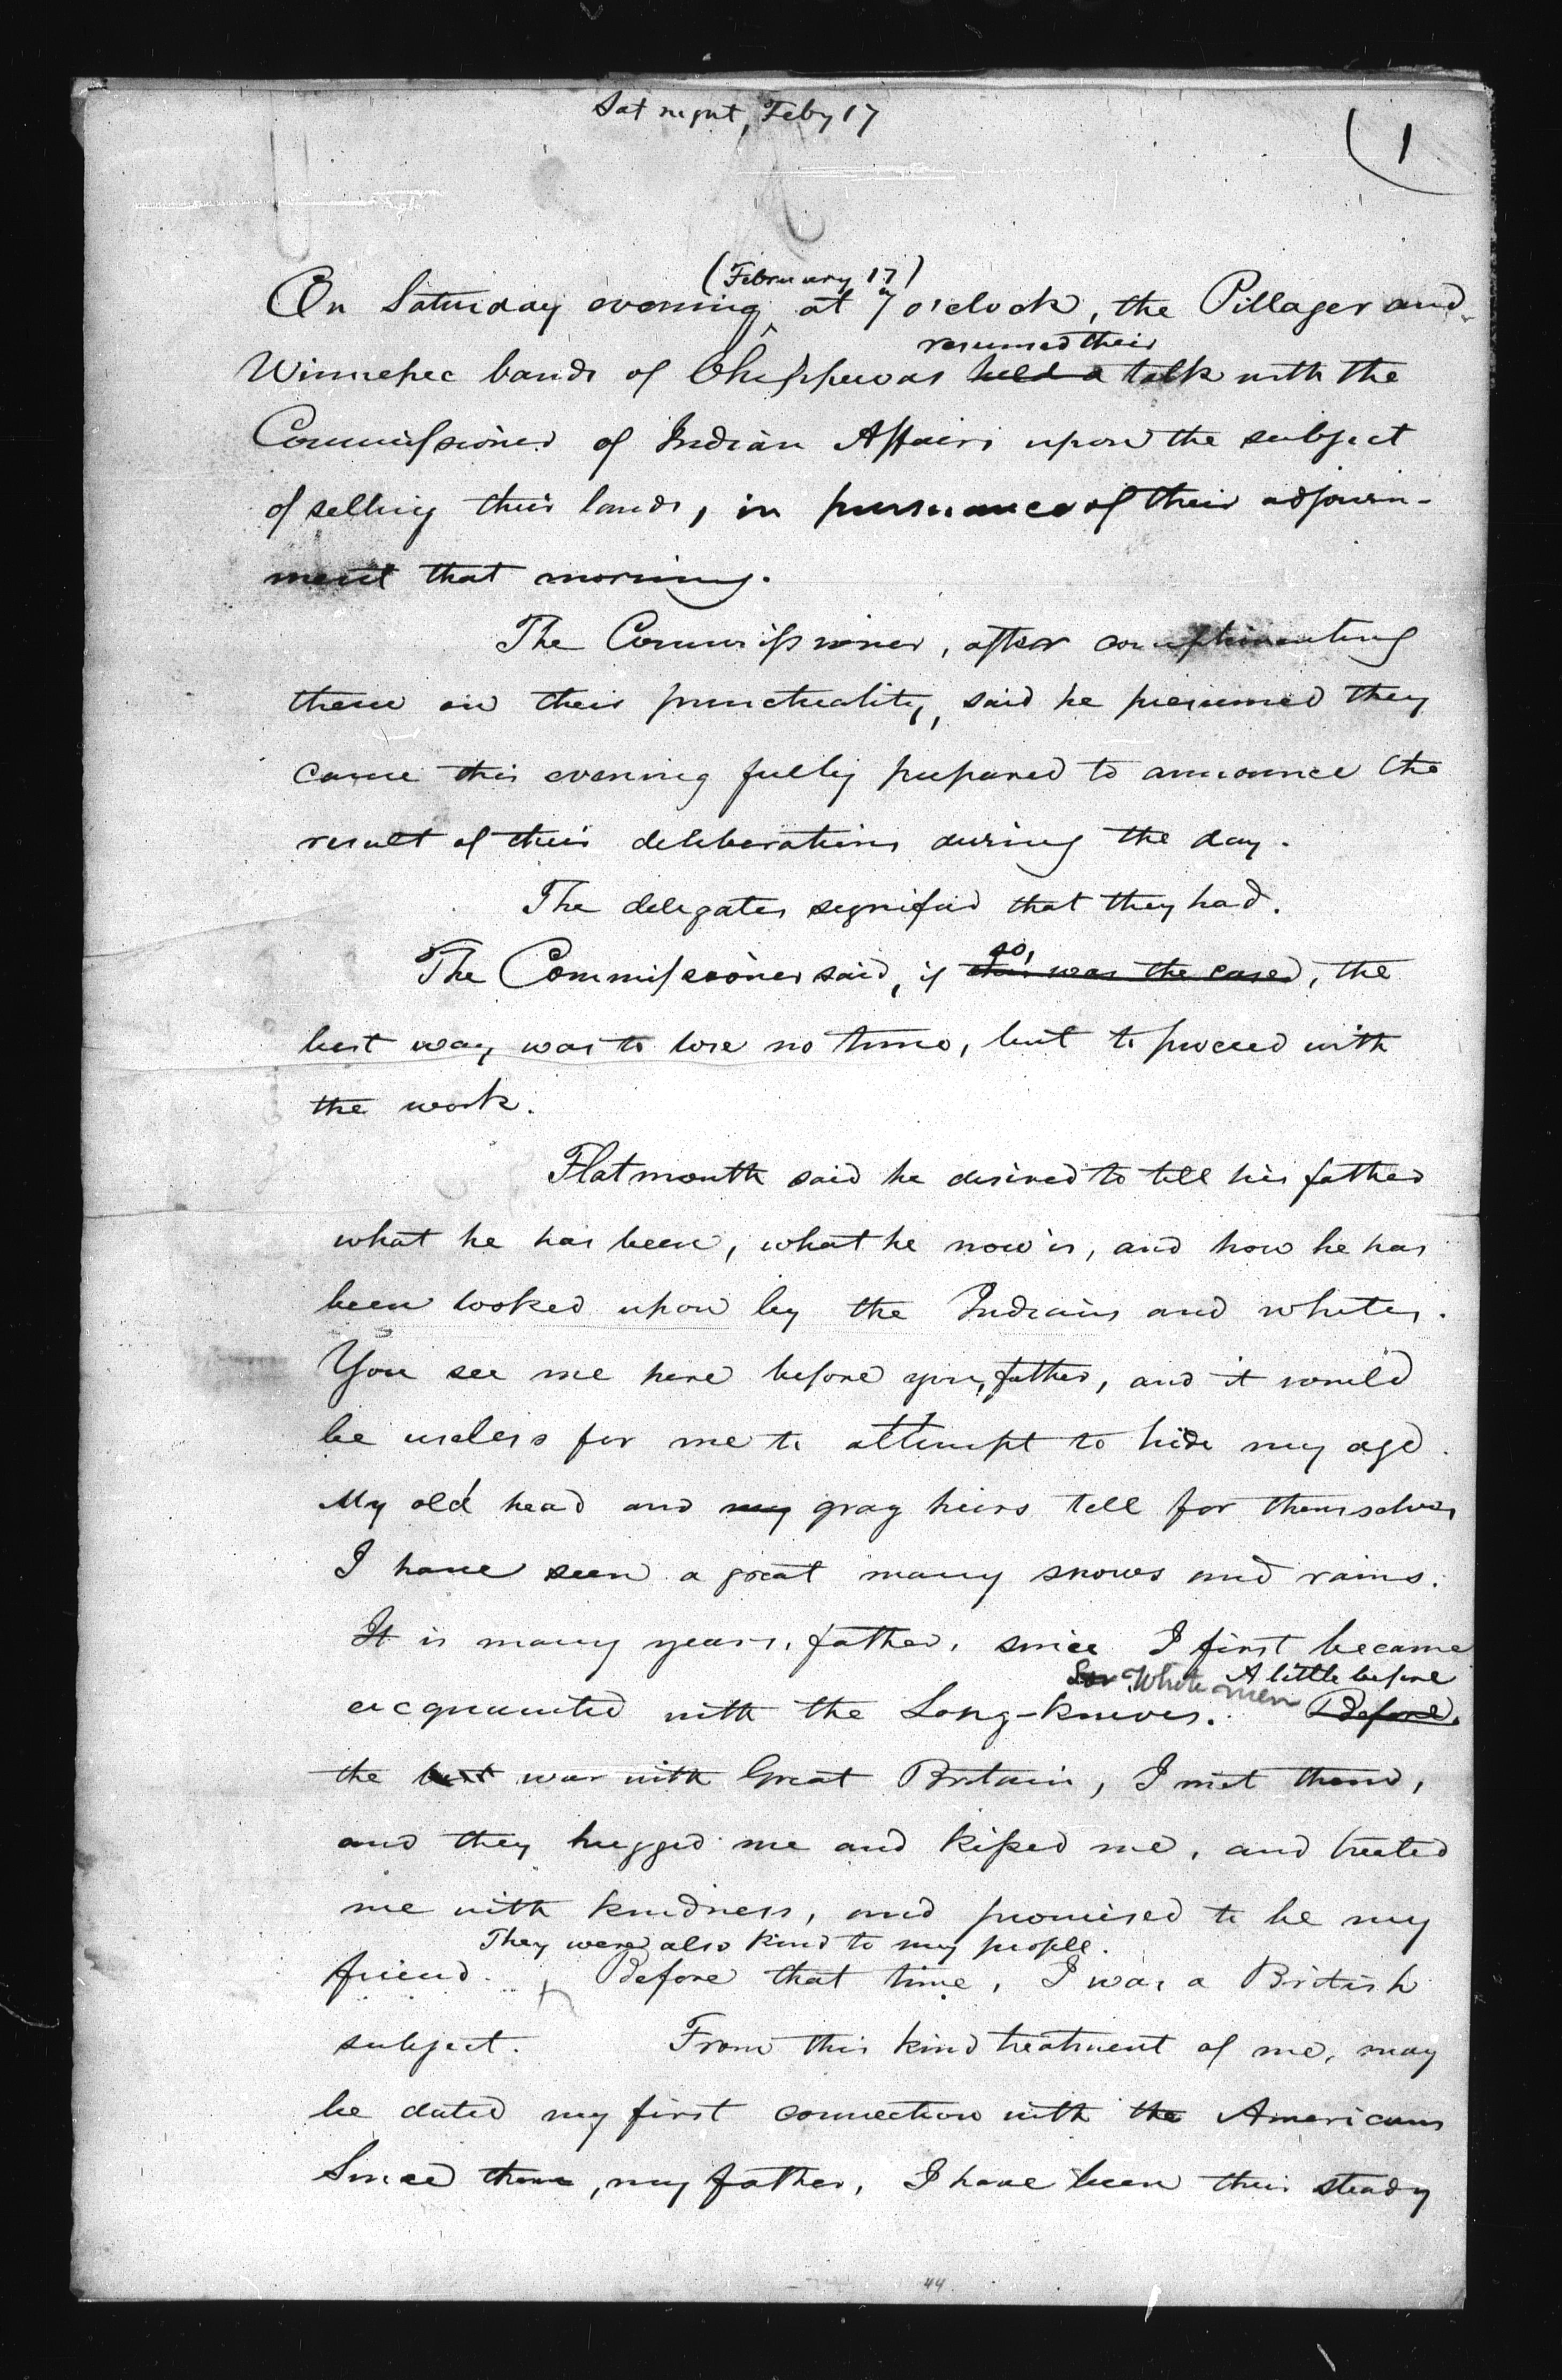 Sat night, Feby 17
1
(February 17)
On Saturday evening, at 7 o'clock, the Pillager and
resumed their
Winnepec bands of Chippewas held a talk with the
Commissioner of Indian Affairs upon the subject
of selling their lands, in pursuance of their adjourn-
ment that morning.
The Commissioner, after complimenting
them on their punctuality, said he presumed they
came this evening fully prepared to announce the
result of their deliberations during the day.
The delegates signified that they had.
so,
The Commissioner said, if this was the case, the
best way was to lose no time, but to proceed with
the work.
Flatmouth said he desired to tell his father
what he has been, what he now is, and how he has
been looked upon by the Indians and whites.
You see me here before you, father, and it would
be useless for me to attempt to hide my age.
My old head and my gray hairs tell for themselves
I have seen a great many snows and rains.
It is many years, father, since I first became
White men A little before
acquainted with the Long-knives. Before
the last war with Great Britain, I met them,
and they hugged me and kissed me, and treated
me with kindness, and promised to be my
They were also kind to my people.
friend. Before that time, I was a British
subject. From this kind treatment of me, may
be dated my first connection with the Americans
Since then, my father, I have been their steady
44